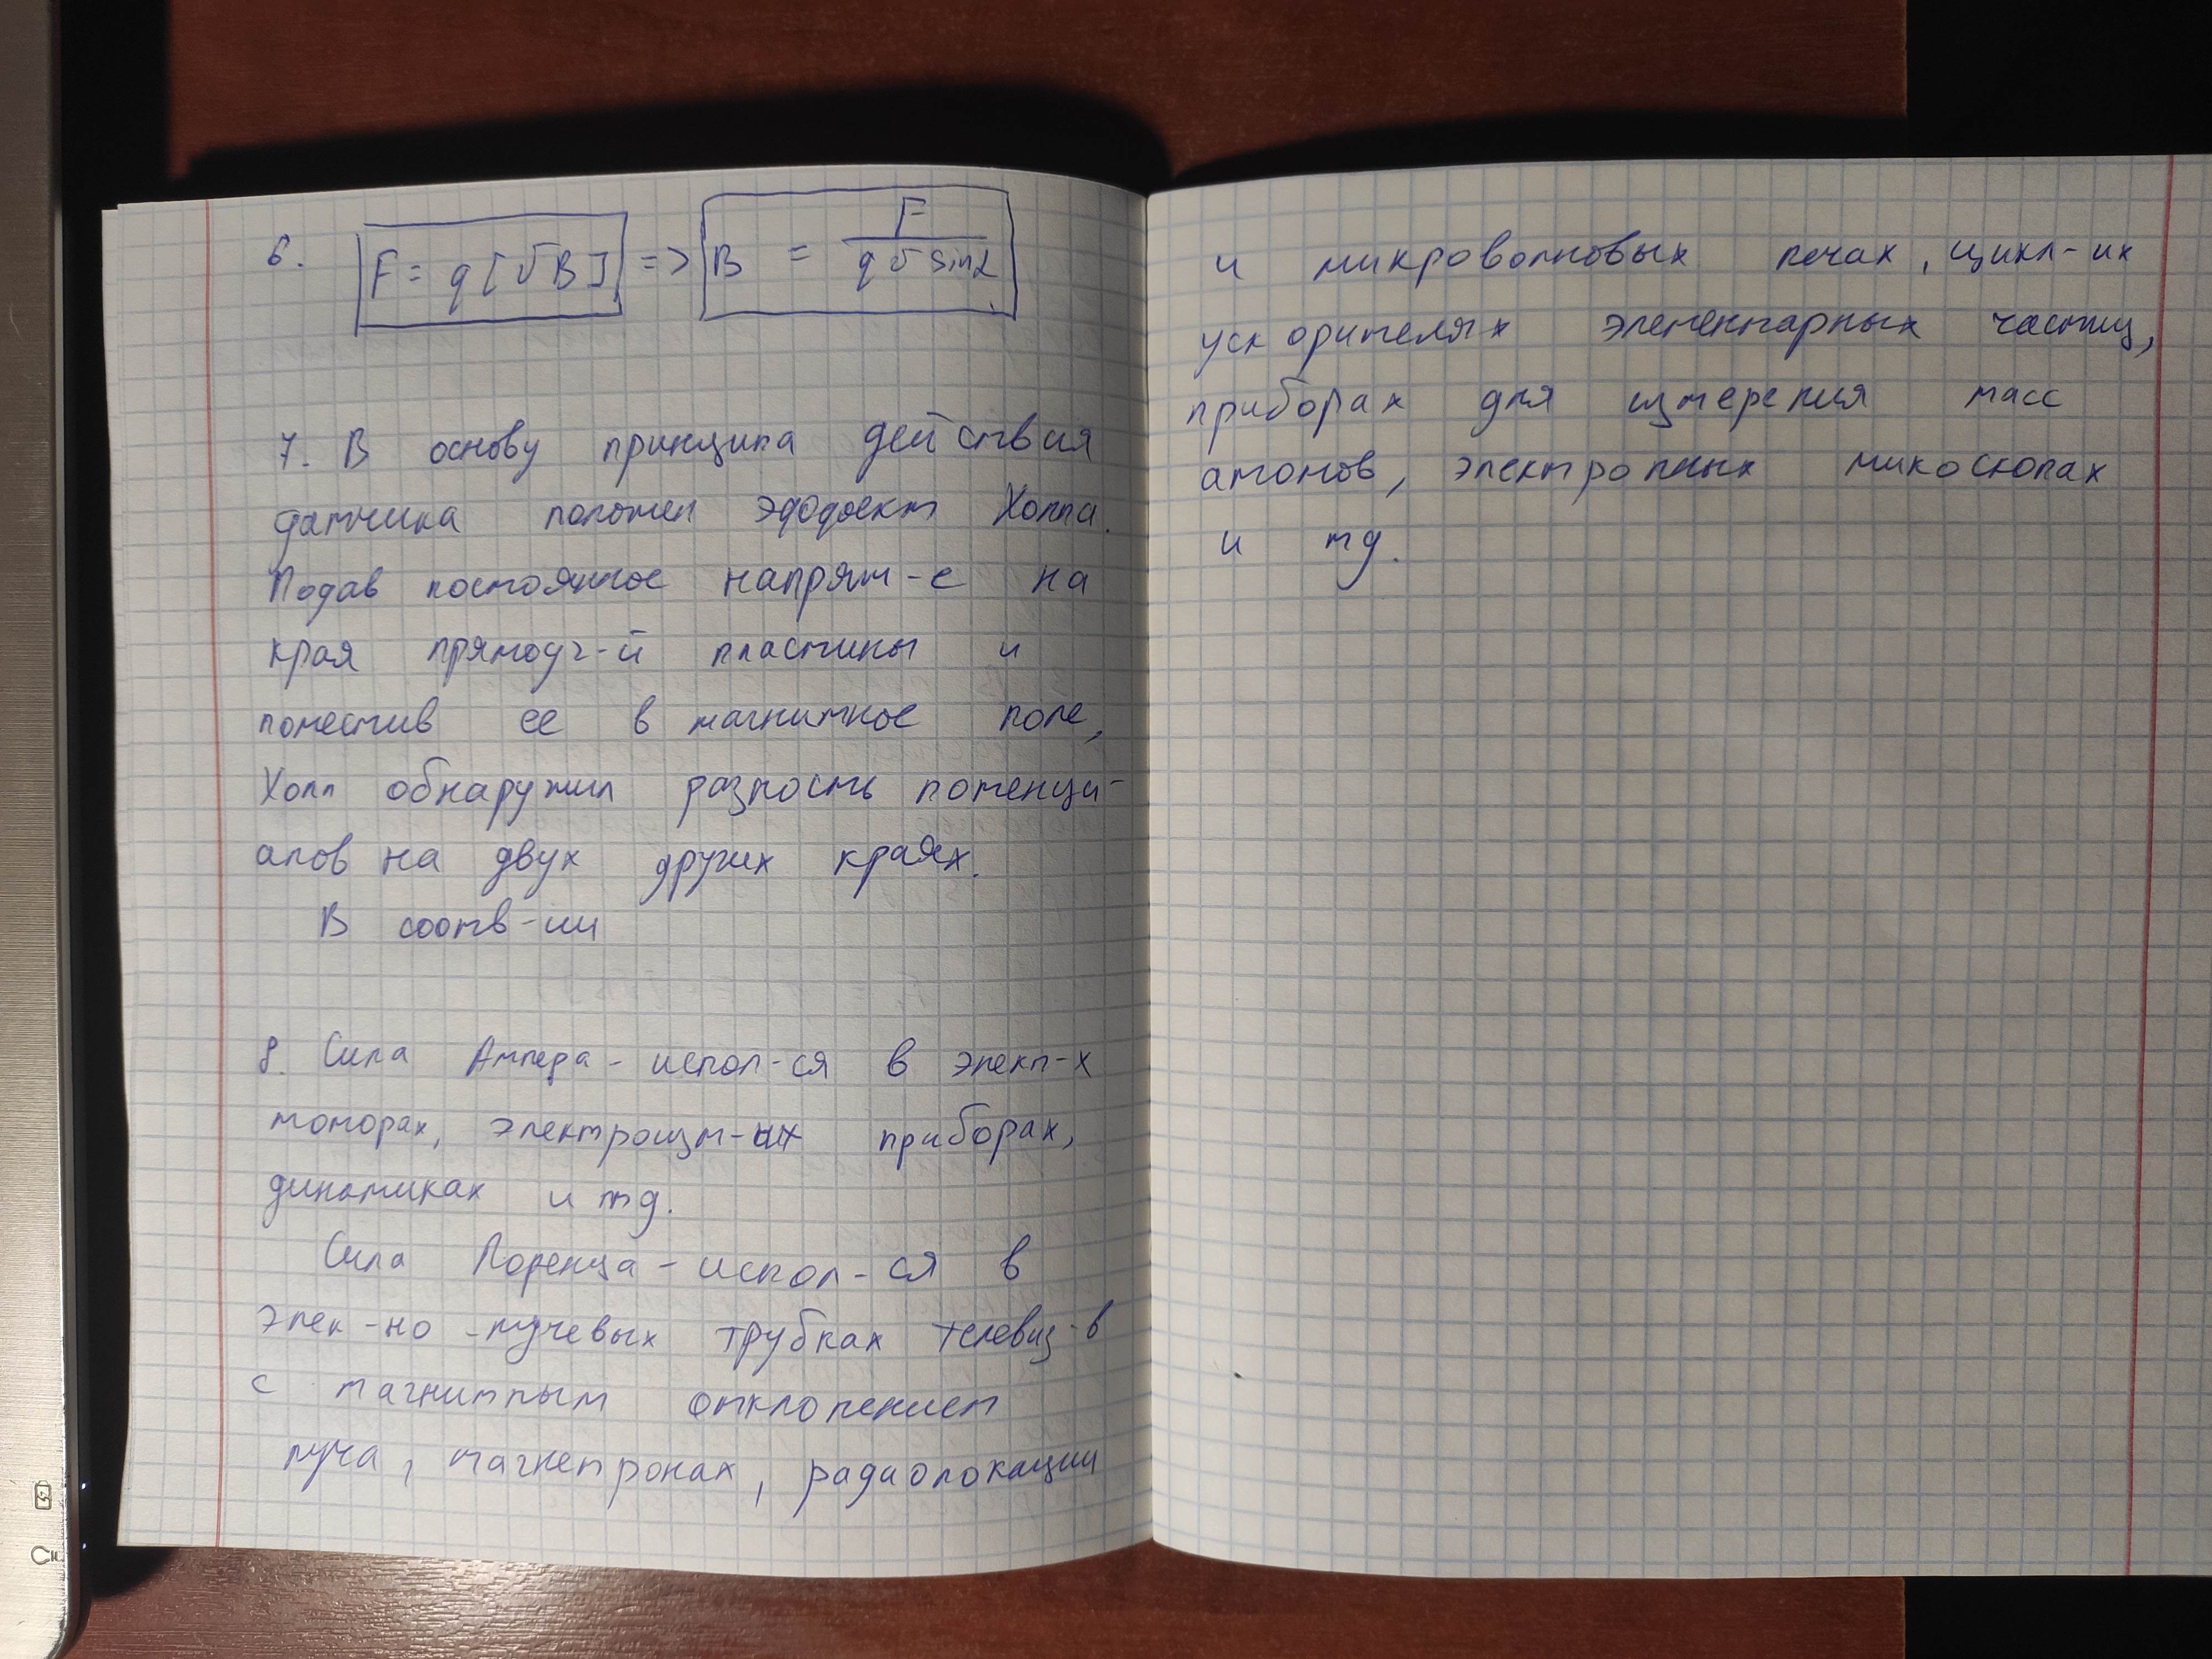 6. F = q[υB] => B = F / qυ sinα
7. В основу принципа действия
датчика положен эффект Холла.
Подав постоянное напряж-е на
края прямоуг-й пластины и
поместив ее в магнитное поле,
Холл обнаружил разность потенци-
алов на двух других краях.
В соотв-ии
8. Сила Ампера - испол-ся в элект-х
моторах, электроизм-ых приборах,
динамиках и тд.
Сила Лоренца - испол-ся в
элек-но-лучевых трубках телевиз-в
с магнитным отклонением
луча, магнетронах, радиолокации
и микроволновых печах, цикл-их
ускорителях элементарных частиц,
приборах для измерения масс
атомов, электронных микоскопах
и тд.